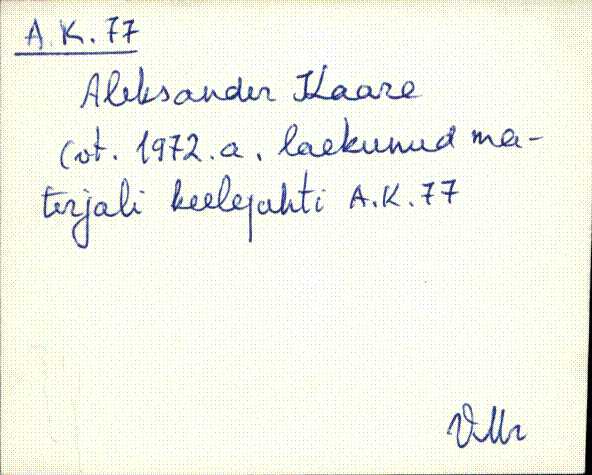 A.K.77
Aleksander Kaare
(vt. 1972.a. laekunud ma-
terjali keelejahti A.K.77
VMr